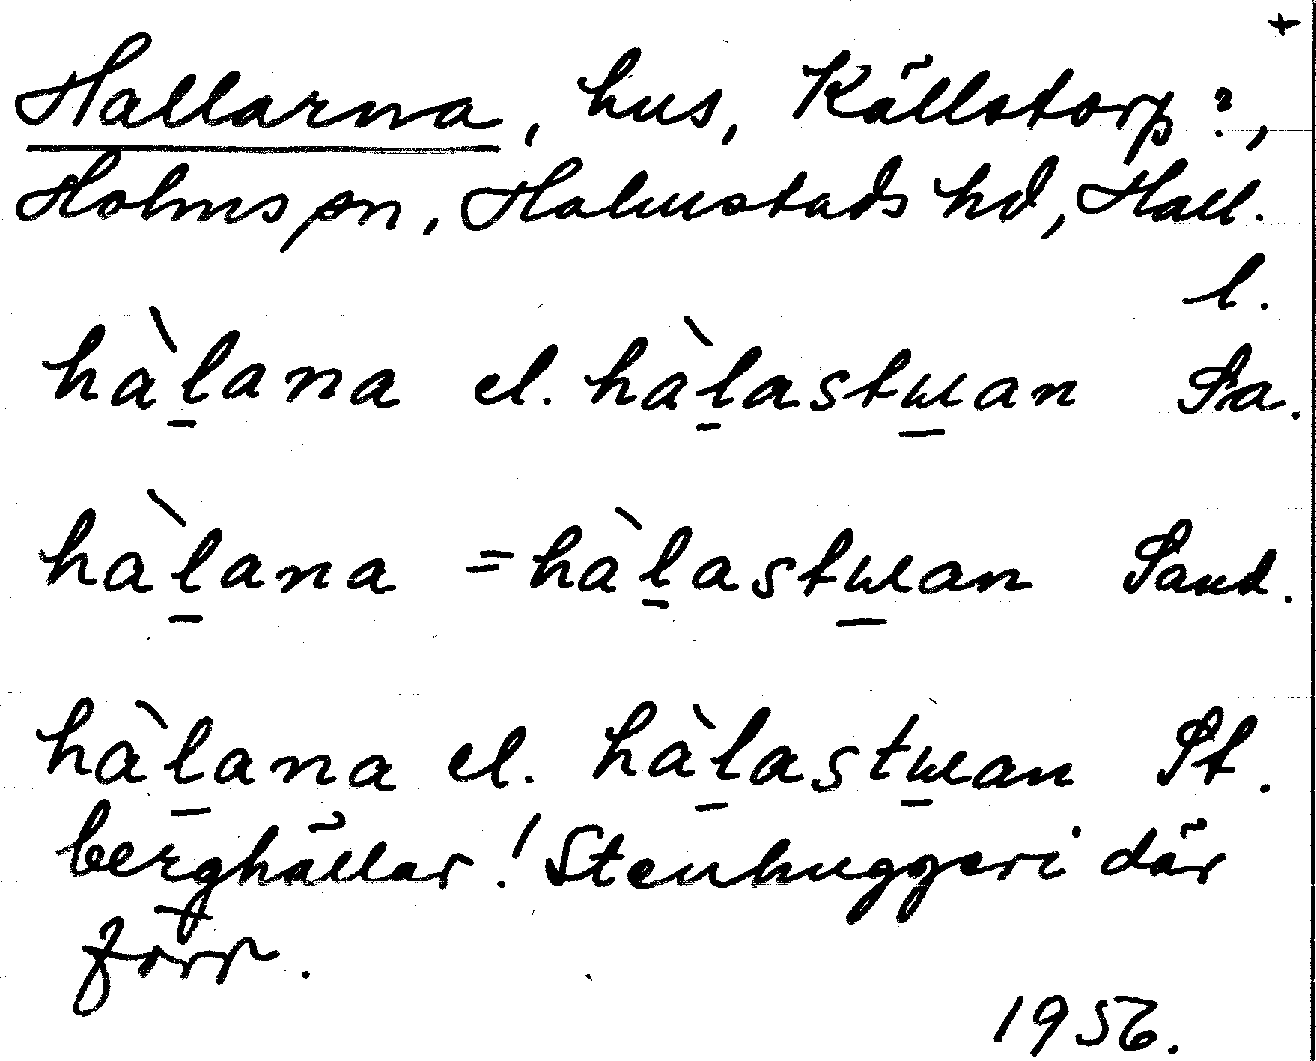 +
Hallarna, hus, Källstorp?,
Holms sn, Halmstads hd, Hall.
l.
hàl̠ana el. hàl̠astɯ̠an Sa.
hàl̠ana = hàl̠astɯ̠an Sand.
hàl̠ana el. hàl̠astɯ̠an St.
berghällar! Stenhuggeri där
förr.
1956.